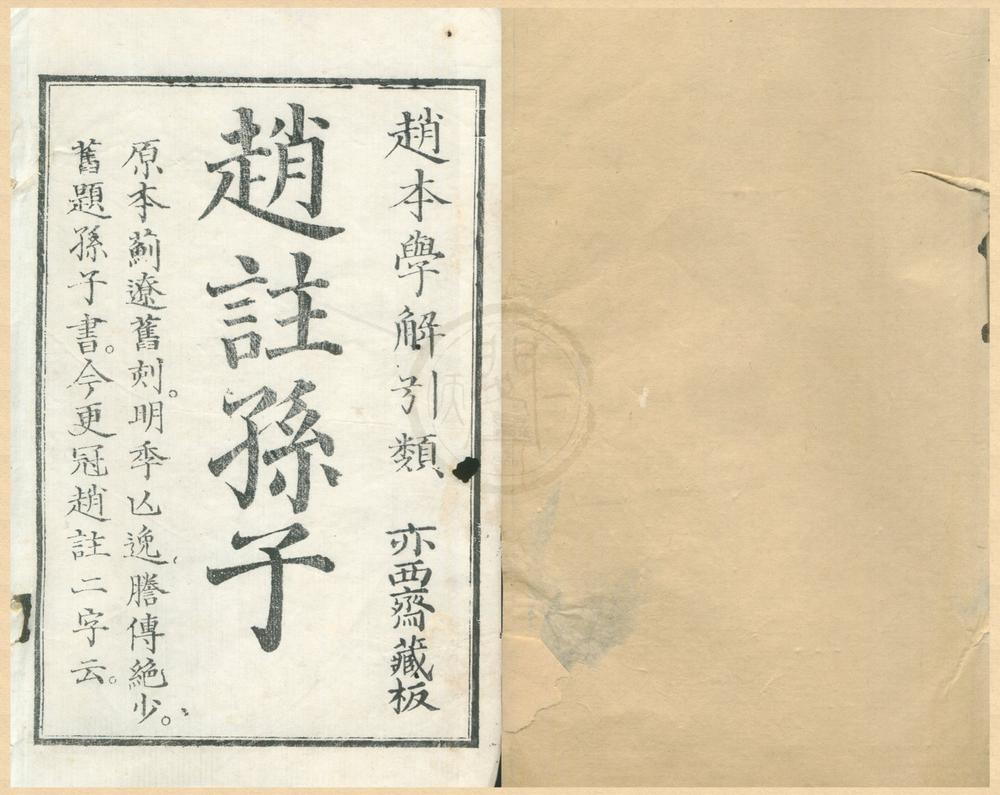 趙本學解引類 亦西齋藏板
趙註孫子
原本薊遼舊刻。明季亾逸、謄傳絶少。
舊題孫子書。今更冠趙註二字云。